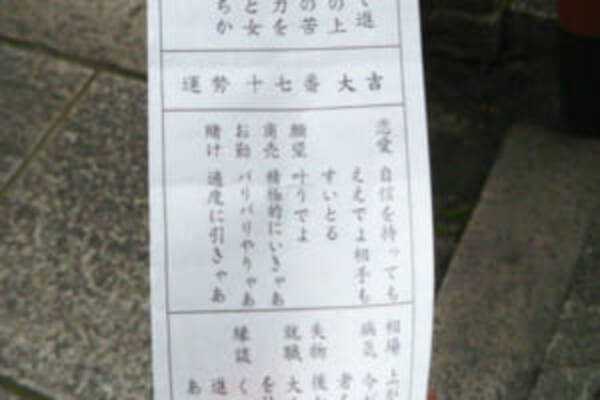 く進
の上
の苦
力を
と女
ちか
運勢 十七番 大吉
恋愛 自信を持っても
ええでよ相手も
すいとる
願望 叶うでよ
商売 積極的にいきゃあ
お勤 バリバリやりゃあ
賭け 適度に引きゃあ
相場 上
病気 今
老
失物 後
就職 大
を
縁談 く
あ